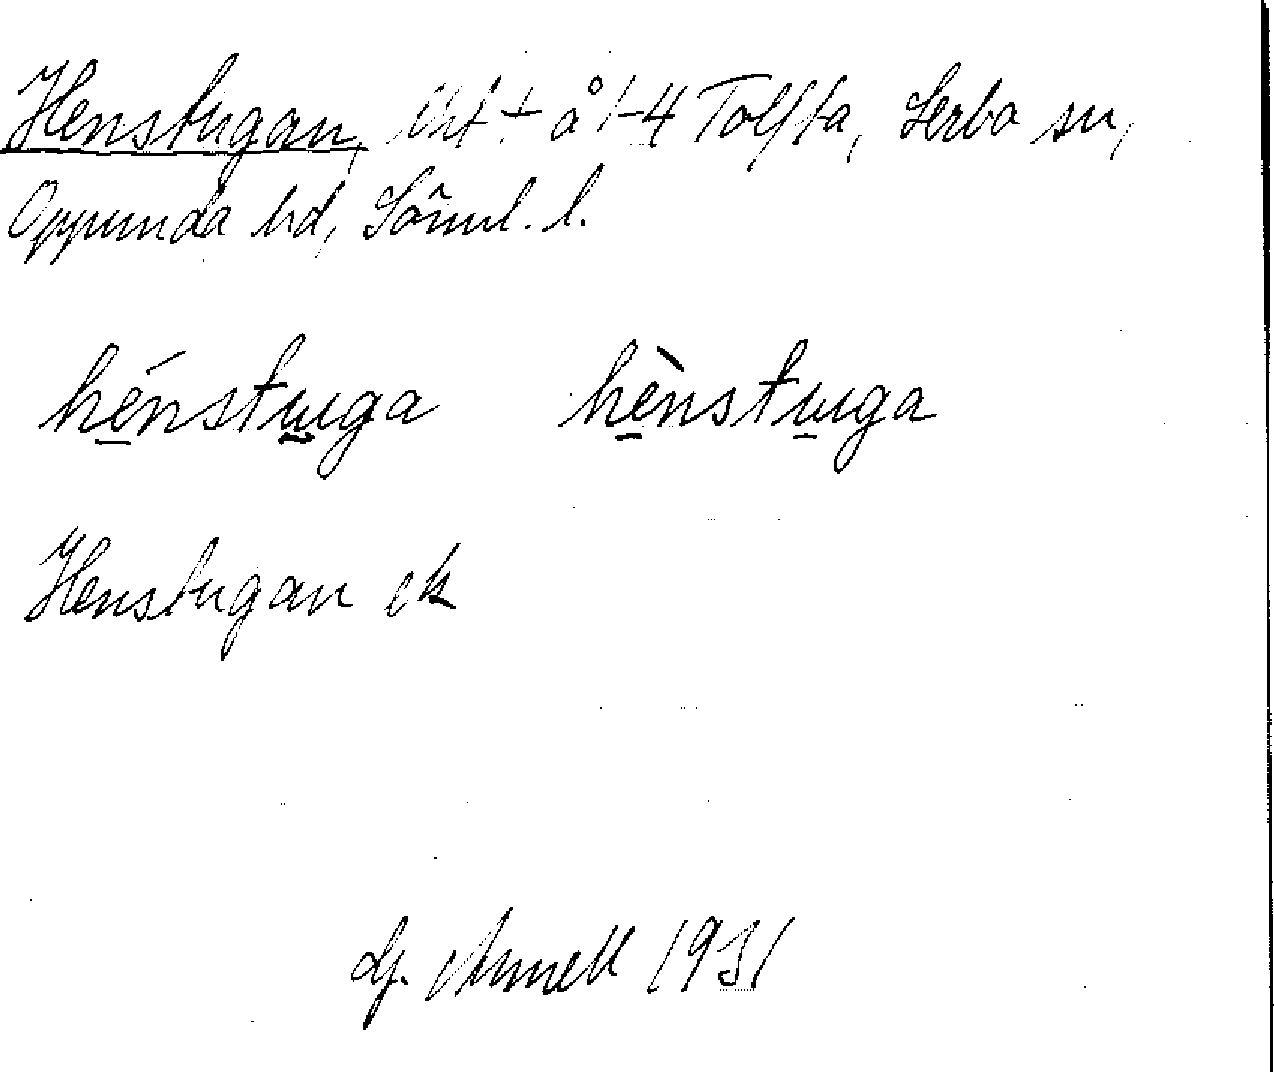 Henstugan, lht + å 1-4 Tolfta, Lerbo sn,
Oppunda hd, Söml. l.
hénstuga hènstuga
Henstugan ek
Hj. Annell 1931